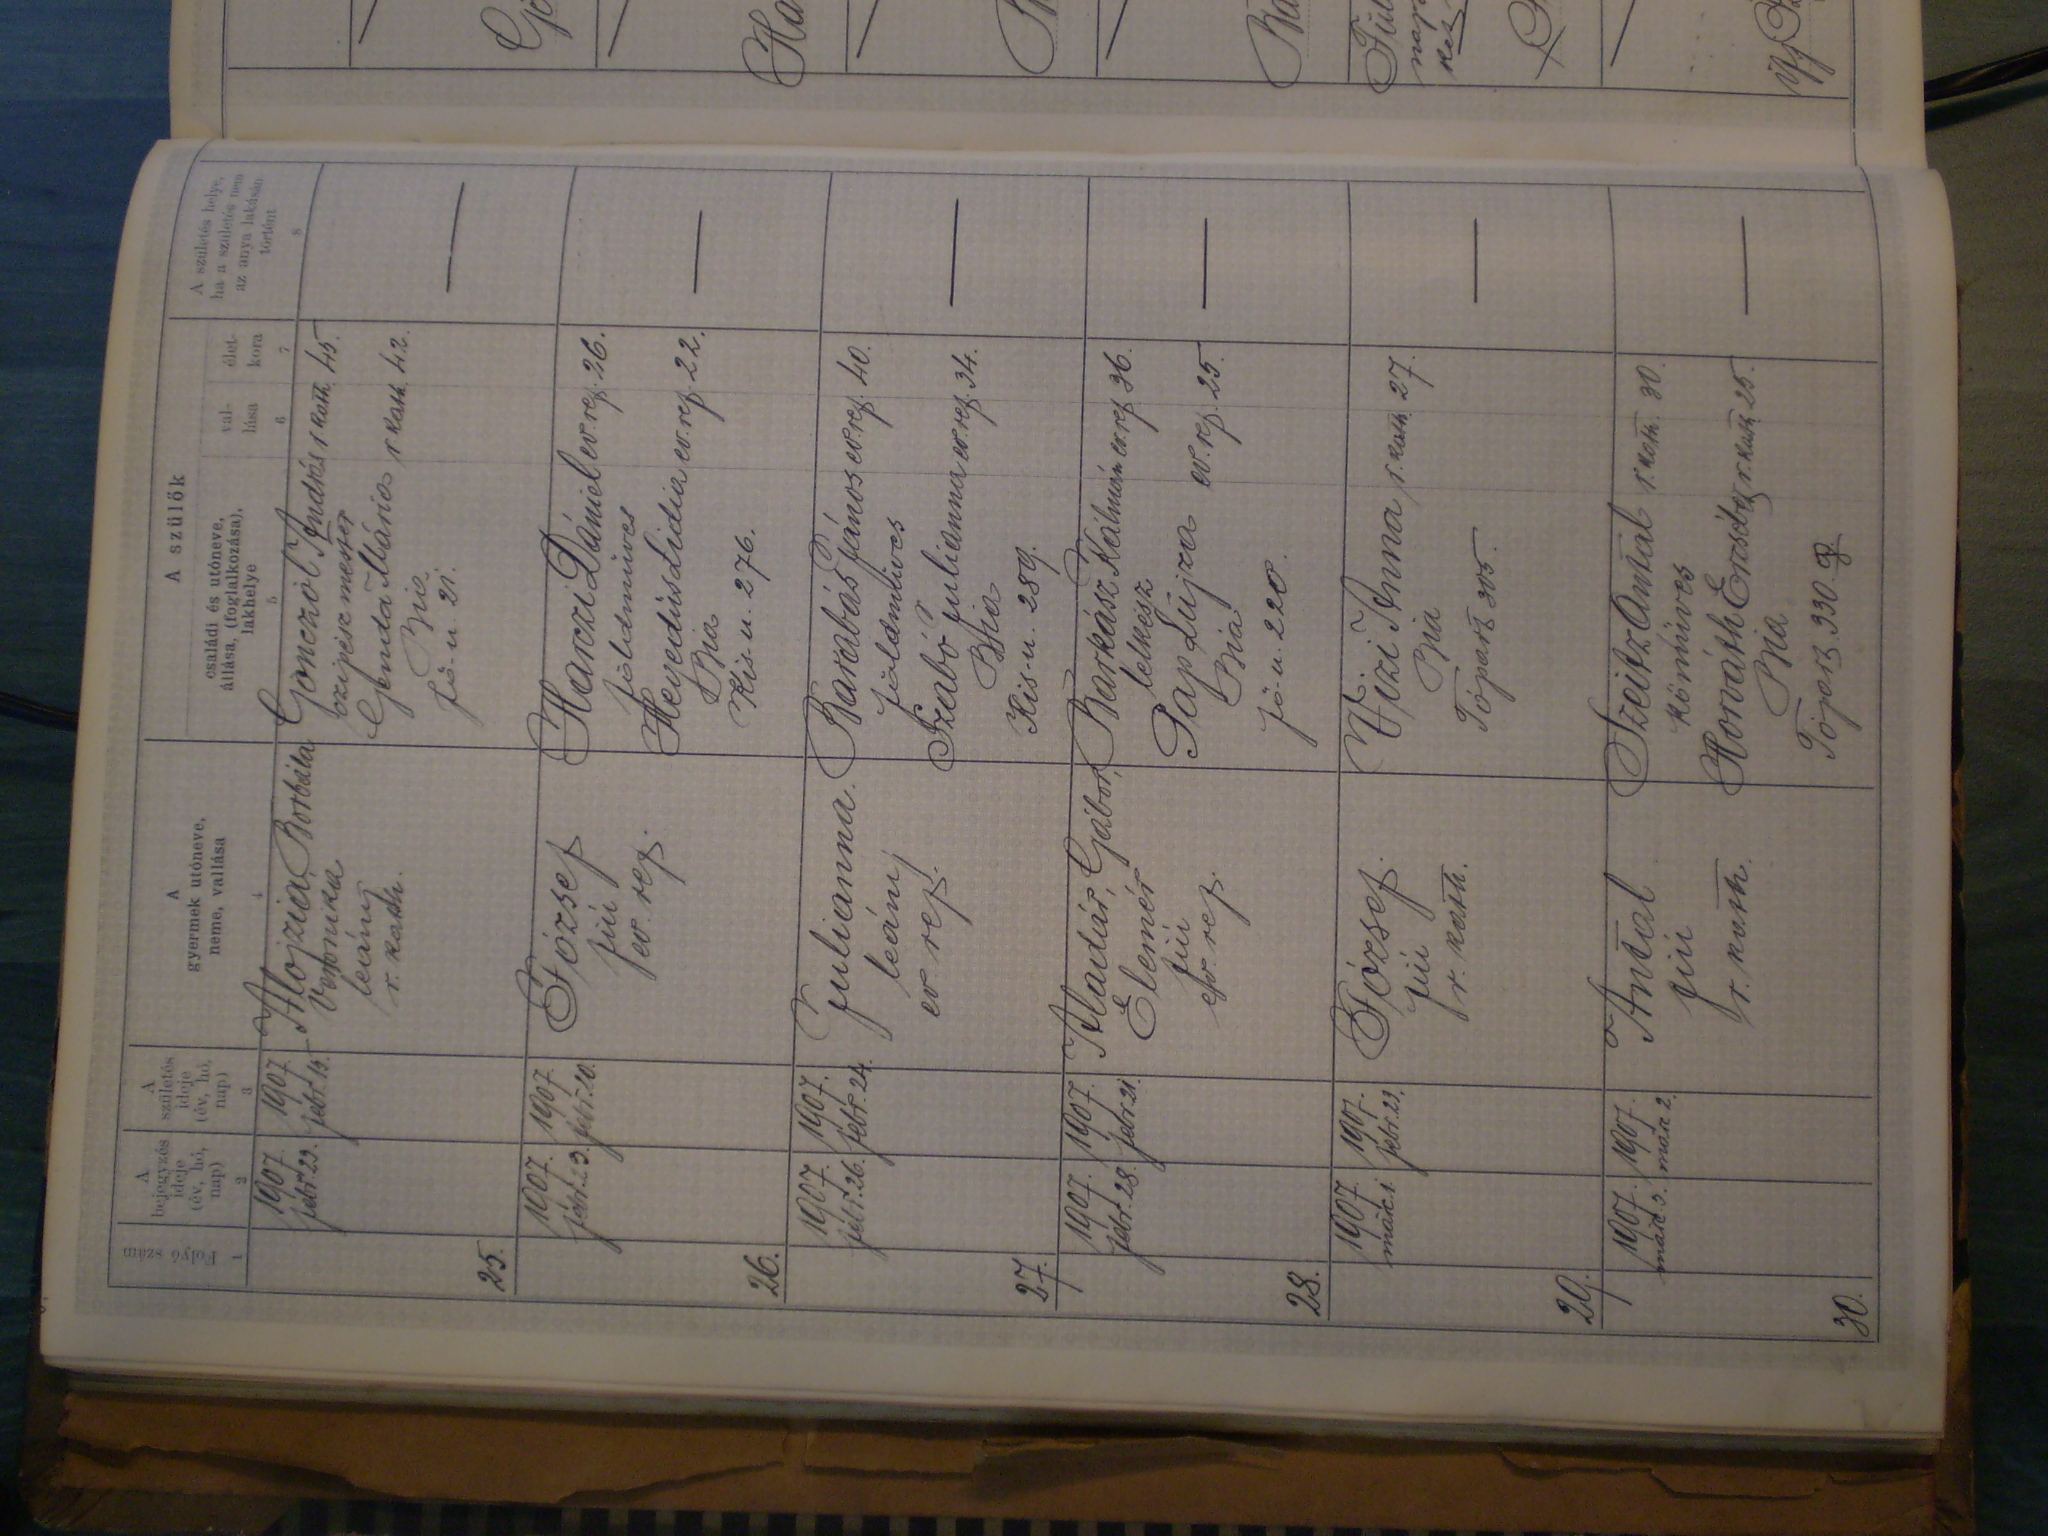 A szülők
Folyó szám
A bejegyzés ideje (év, hó, nap)
A születés ideje (év, hó, nap)
A gyermek utóneve, neme, vallása
családi és utóneve, állása, (foglalkozása), lakhelye
val-lása
élet-kora
A születés helye, ha a születés nem az anya lakásán történt
1
2
3
4
5
6
7
8
25.
1907. febr. 23.
1907 febr. 19.
Alojzia, Borbála
Veronika
leány
r. kath.
Gönczöl András r. kath. 45.
czipész mester
Genda Mária r. kath. 42.
Bia
fő-u. 21.
—
26.
1907. febr. 23.
1907. febr. 20.
József
fiú
ev. ref.
Harczi Dániel ev. ref. 26.
földmüves
Hegedüs Lidia ev. ref. 22.
Bia
Kis-u. 276.
—
27.
1907. febr. 26.
1907. febr. 24.
Julianna.
leány
ev. ref.
Barabás János ev. ref. 40.
földmüves
Szabó Julianna ev. ref. 34.
Bia
Kis-u. 289.
—
28.
1907. febr. 28.
1907. febr. 21.
Aladár, Gábor,
Elemér
fiú
ev. ref.
Barkász Kálmán ev. ref. 36.
lelkész
Pap Lujza ev. ref. 25.
Bia
fő-u. 220.
—
29.
1907 márc. 1.
1907. febr. 23.
József.
fiú
r. kath.
Vizi Anna r. kath. 27.
Bia
Tópart 305.
—
30.
1907. márc. 3.
1907. márc. 2.
Antal
fiú
r. kath.
Szeitz Antal r. kath. 30.
kőmüves
Horváth Erzsébet r. kath. 25.
Bia.
Tópart 330.
—